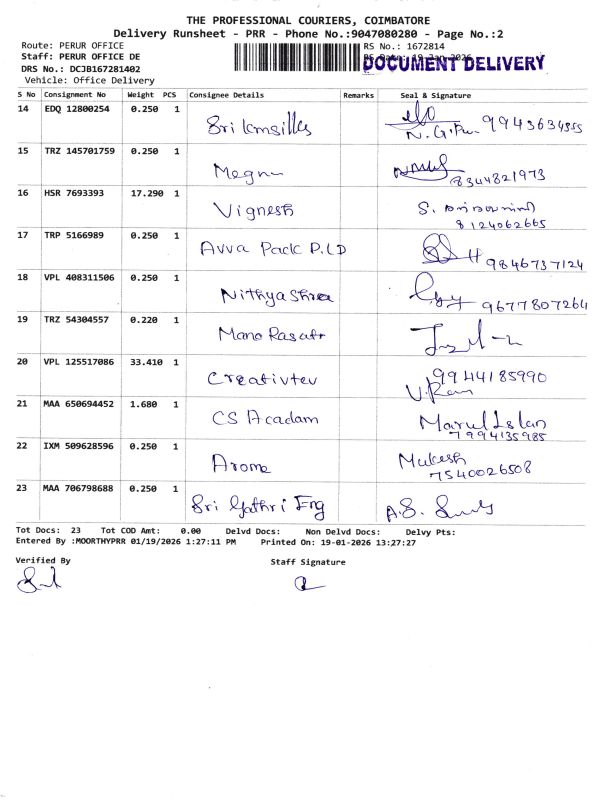 THE PROFESSIONAL COURIERS, COIMBATORE
Delivery Runsheet - PRR - Phone No.:9047080280 - Page No.:2
Route: PERUR OFFICE
RS No.: 1672814
Staff: PERUR OFFICE DE
DOCUMENT DELIVERY
DRS No.: DCJB167281402
Vehicle: Office Delivery
S No Consignment No Weight PCS Consignee Details Remarks Seal & Signature
14 EDQ 12800254 0.250 1
Sri N. G. 9943634955
15 TRZ 145701759 0.250 1
8344821973
16 HSR 7693393 17.290 1
Vignesh S.
8124062665
17 TRP 5166989 0.250 1
Avva Pack P.LD 9846737124
18 VPL 408311506 0.250 1
Nithyashree 9677807264
19 TRZ 54304557 0.220 1
Mano
20 VPL 125517086 33.410 1
9944185990
21 MAA 650694452 1.680 1
CS Acadam
7994135985
22 IXM 509628596 0.250 1
Aroma Mukesh
7540026508
23 MAA 706798688 0.250 1
Sri Gathri Eng A.S.
Tot Docs: 23 Tot COD Amt: 0.00 Delvd Docs: Non Delvd Docs: Delvy Pts:
Entered By :MOORTHYPRR 01/19/2026 1:27:11 PM Printed On: 19-01-2026 13:27:27
Verified By Staff Signature